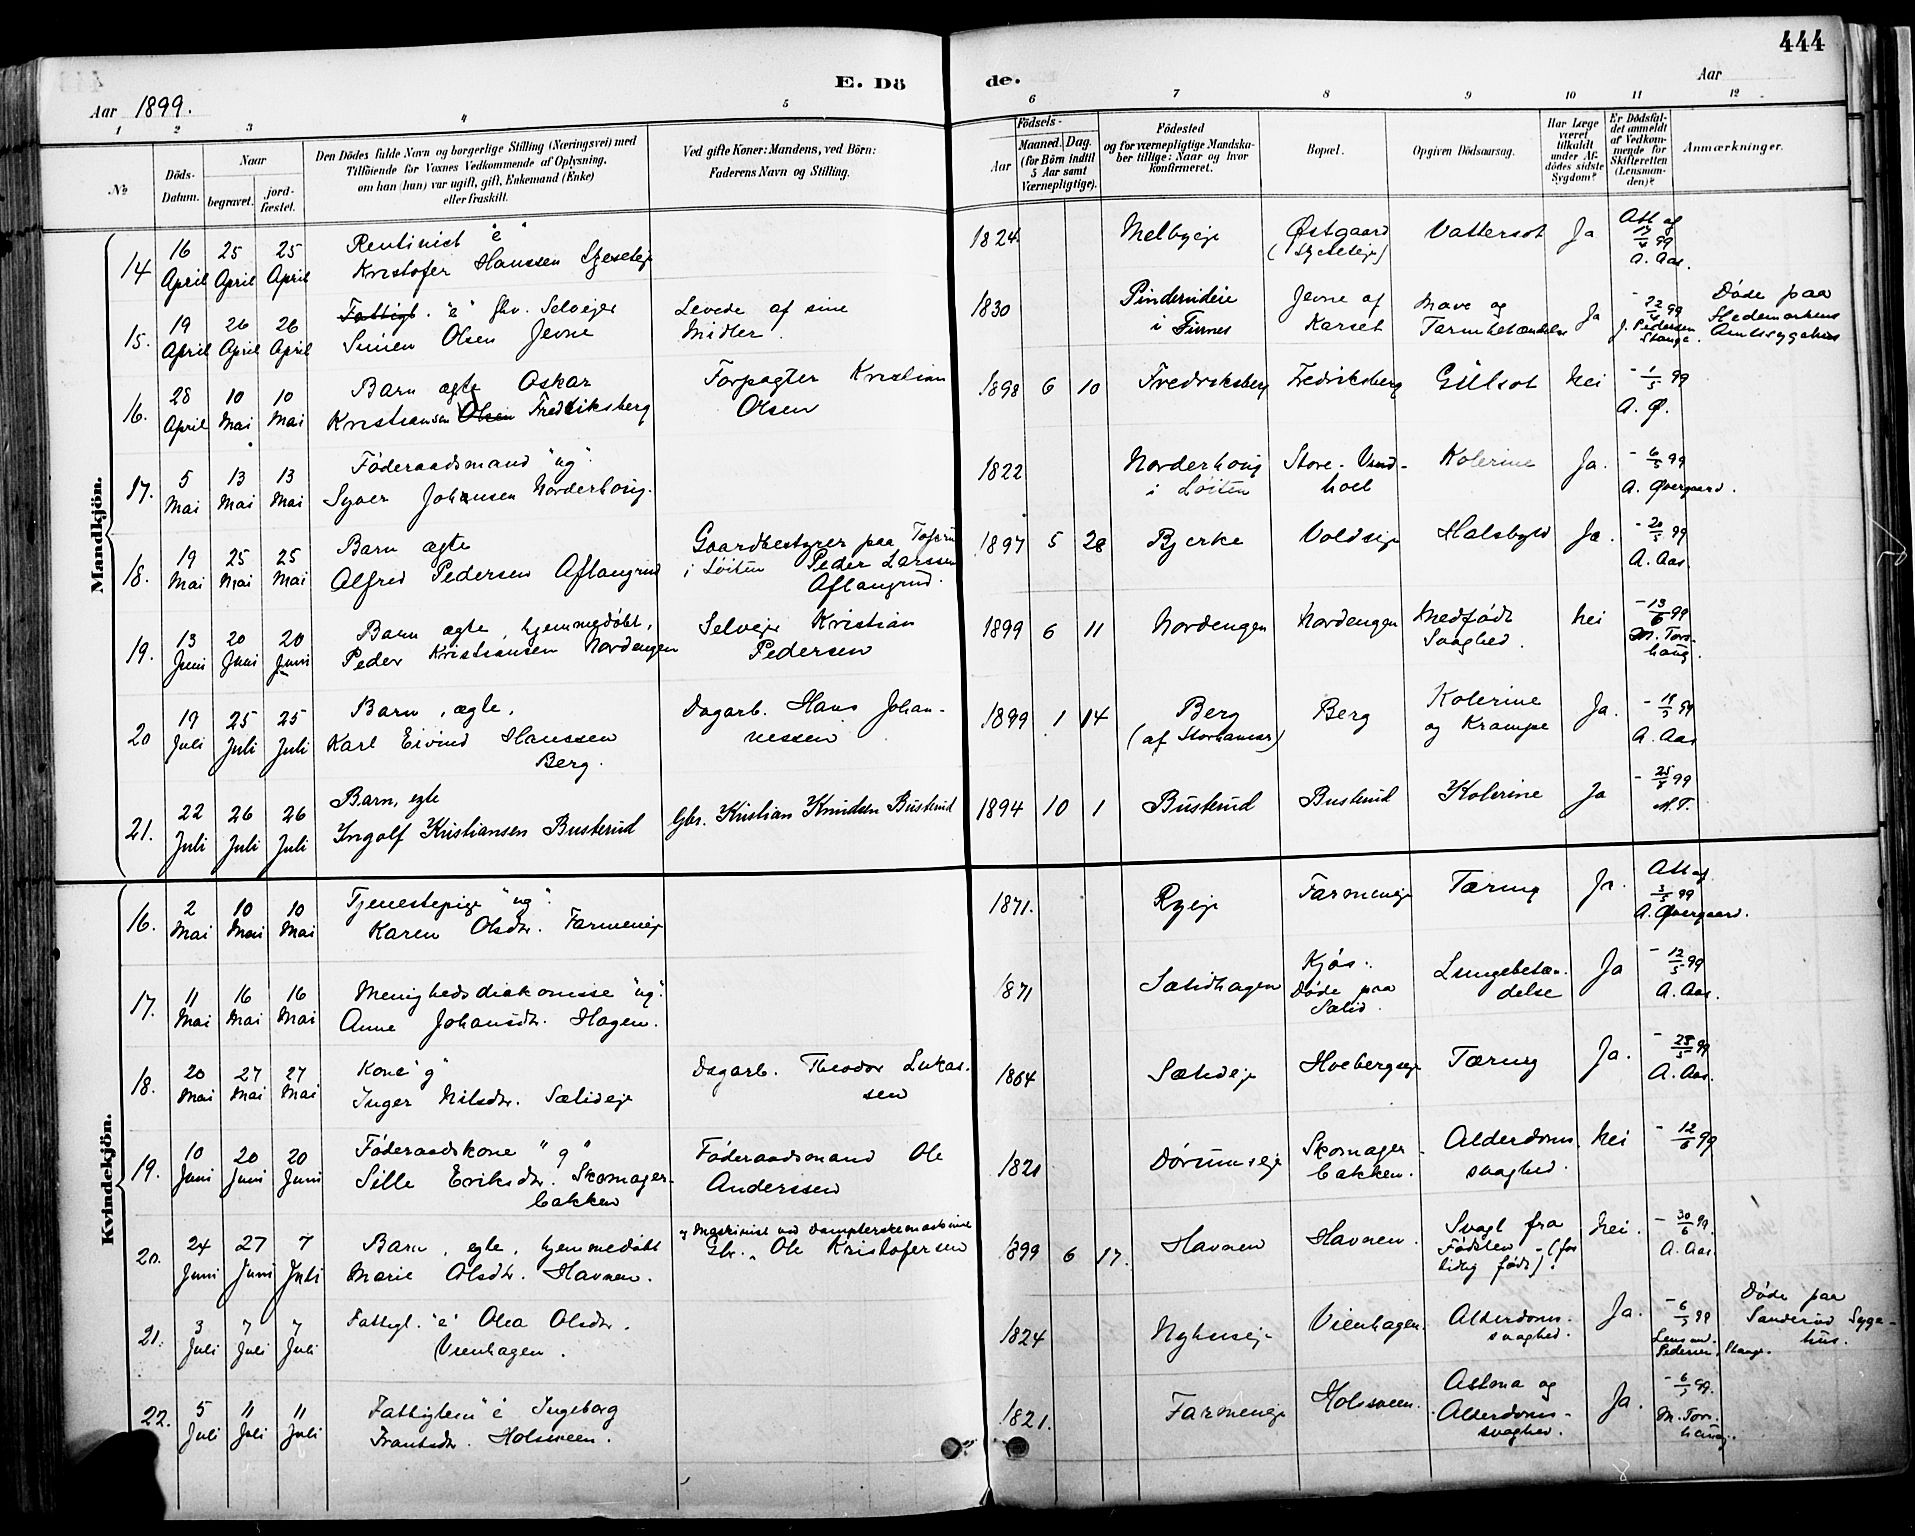 444
E. Dö de.
Aar 1899.
Aar
1 2 3 4 5 6 7 8 9 10 11 12
No
Döds-Datum.
Naar
begravet.
jord-fæstet.
Den Dödes fulde Navn og borgerlige Stilling (Næringsvei) med
Tilföiende for Voxnes Vedkommende af Oplysning,
om han (hun) var ugift, gift, Enkemand (Enke)
eller fraskilt.
Ved gifte Koner: Mandens, ved Börn:
Faderens Navn og Stilling.
Födsels-
Aar
Maaned. Dag.
(for Börn indtil
5 Aar samt
Værnepligtige).
Födested
og for værnepligtige Mandska-
ber tillige: Naar og hvor
konfirmeret.
Bopæl.
Opgiven Dödsaarsag.
Har Læge
været
tilkaldt
under Af-
dödes sidste
Sygdom?
Er Dödsfal-
det anmeldt
af Vedkom-
mende for
Skifteretten
(Lensman-
den)?
Anmærkninger.
Mandkjön.
14 16 April 25 April 25 April
Rentinist "e"
Kristofer Hanssen
1824 Melbyeje Østgaard Vattersot Ja
Att af 17/4 99
A. Aas.
15. 19 April 26 April 26 April
Fattigl. "e" fhv. Selvejer
Simen Olsen Jevne
Levede af sine
Midler.
1830
i Furnes
Jevne af
Karset
Mave og
Tarmbetændelse
Ja
- 22/4 99
J. Pedersen
Stange.
Døde paa
Hedemarkens
Amtssygehus
16. 28 April 10 Mai 10 Mai
Barn ægte Oskar
Kristiansen Olsen Fredriksberg
Forpagter Kristian
Olsen
1898 6 10 Fredriksberg Fredriksberg Gulsot Nei
- 1/5 99
A. Ø.
17. 5 Mai 13 Mai 13 Mai
Føderaadsmand "ug".
Syver Johansen Norderhoug.
1822
Norderhoug
i Løiten
Kolerine Ja.
- 6/5 99
A. Øvergaard.
18. 19 Mai 25 Mai 25 Mai
Barn ægte
Alfred Pedersen Aflangrud
Gaardbestyrer paa
i Løiten Peder Larssen
Aflangrud.
1897 5 28 Bjerke Voldseje Halsbyld Ja.
- 20/5 99
A. Aas.
19. 13 Juni 20 Juni 20 Juni
Barn ægte, hjemmedøbt,
Peder Kristiansen Nordengen
Selvejer Kristian
Pedersen
1899 6 11 Nordengen Nordengen
Medfødt
Svaghed.
Nei
- 13/6 99
M. Tors-
houg.
20 19 Juli 25 Juli 25 Juli
Barn, ægte,
Karl Eivind Hanssen
Berg.
Dagarb. Hans Johan-
nessen
1899 1 14
Berg
(af Storhamar)
Berg
Kolerine
og Krampe
Ja.
A. Aas
21. 22 Juli 26 Juli 26 Juli
Barn, egte
Ingolf Kristiansen Busterud
Gbr. Kristian Knudsen Busterud
1894 10 1 Busterud Busterud Kolerine Ja
M.T.
Kvindekjön.
16. 2 Mai 10 Mai 10 Mai
Tjenestepige "ug".
Karen Olsdtr. Farmeneje
1871. Ryeje Farmeneje Tæring Ja.
Att af
3/5 99
A. Øvergaard.
17. 11 Mai 16 Mai 16 Mai
Menighedsdiakonisse "ug".
Anne Johansdtr. Hagen.
1871 Sælidhagen
Kjøs.
Døde paa
Sælid.
Lungebetæn-
delse
Ja
- 12/5 99
A. Aas.
18. 20 Mai 27 Mai 27 Mai
Kone "g"
Inger Nilsdtr. Sælideje
Dagarb. Theodor Lukas-
sen
1864 Sælideje Hoebergseje Tæring Ja.
A. Aas.
19. 10 Juni 20 Juni 20 Juni
Føderaadskone "g"
Sille Eriksdtr. Skomager-
bakken
Føderaadsmand Ole
Anderssen
1821 Dørumseje
Skomager-
bakken.
Alderdoms-
svaghed.
Nei
- 12/6 99
20. 24 Juni 27 Juni 7 Juli
Barn, egte, hjemmedøbt
Marie Olsdtr. Havnen.
Gbr. Ole Kristofersen
1899 6 17. Havnen Havnen.
Svagt fra
Fødslen - (for
tidlig født).
Nei.
- 30/6 99.
A. Aas.
21. 3 Juli 7 Juli 7 Juli
Fattigl. "e" Olea Olsdtr.
Vienhagen.
1824 Nyhuseje Vienhagen.
Alderdoms-
svaghed.
Ja.
Lensmd.
Pedersen, Stange.
Døde paa
Sanderud Syge-
hus.
22. 5 Juli 11 Juli 11 Juli
Fattiglem "e" Ingeborg
Frantsdtr. Holsveen.
1821. Farmeneje Holsveen.
Astma og
Alderdoms-
svaghed.
Ja.
M. Tors-
houg.